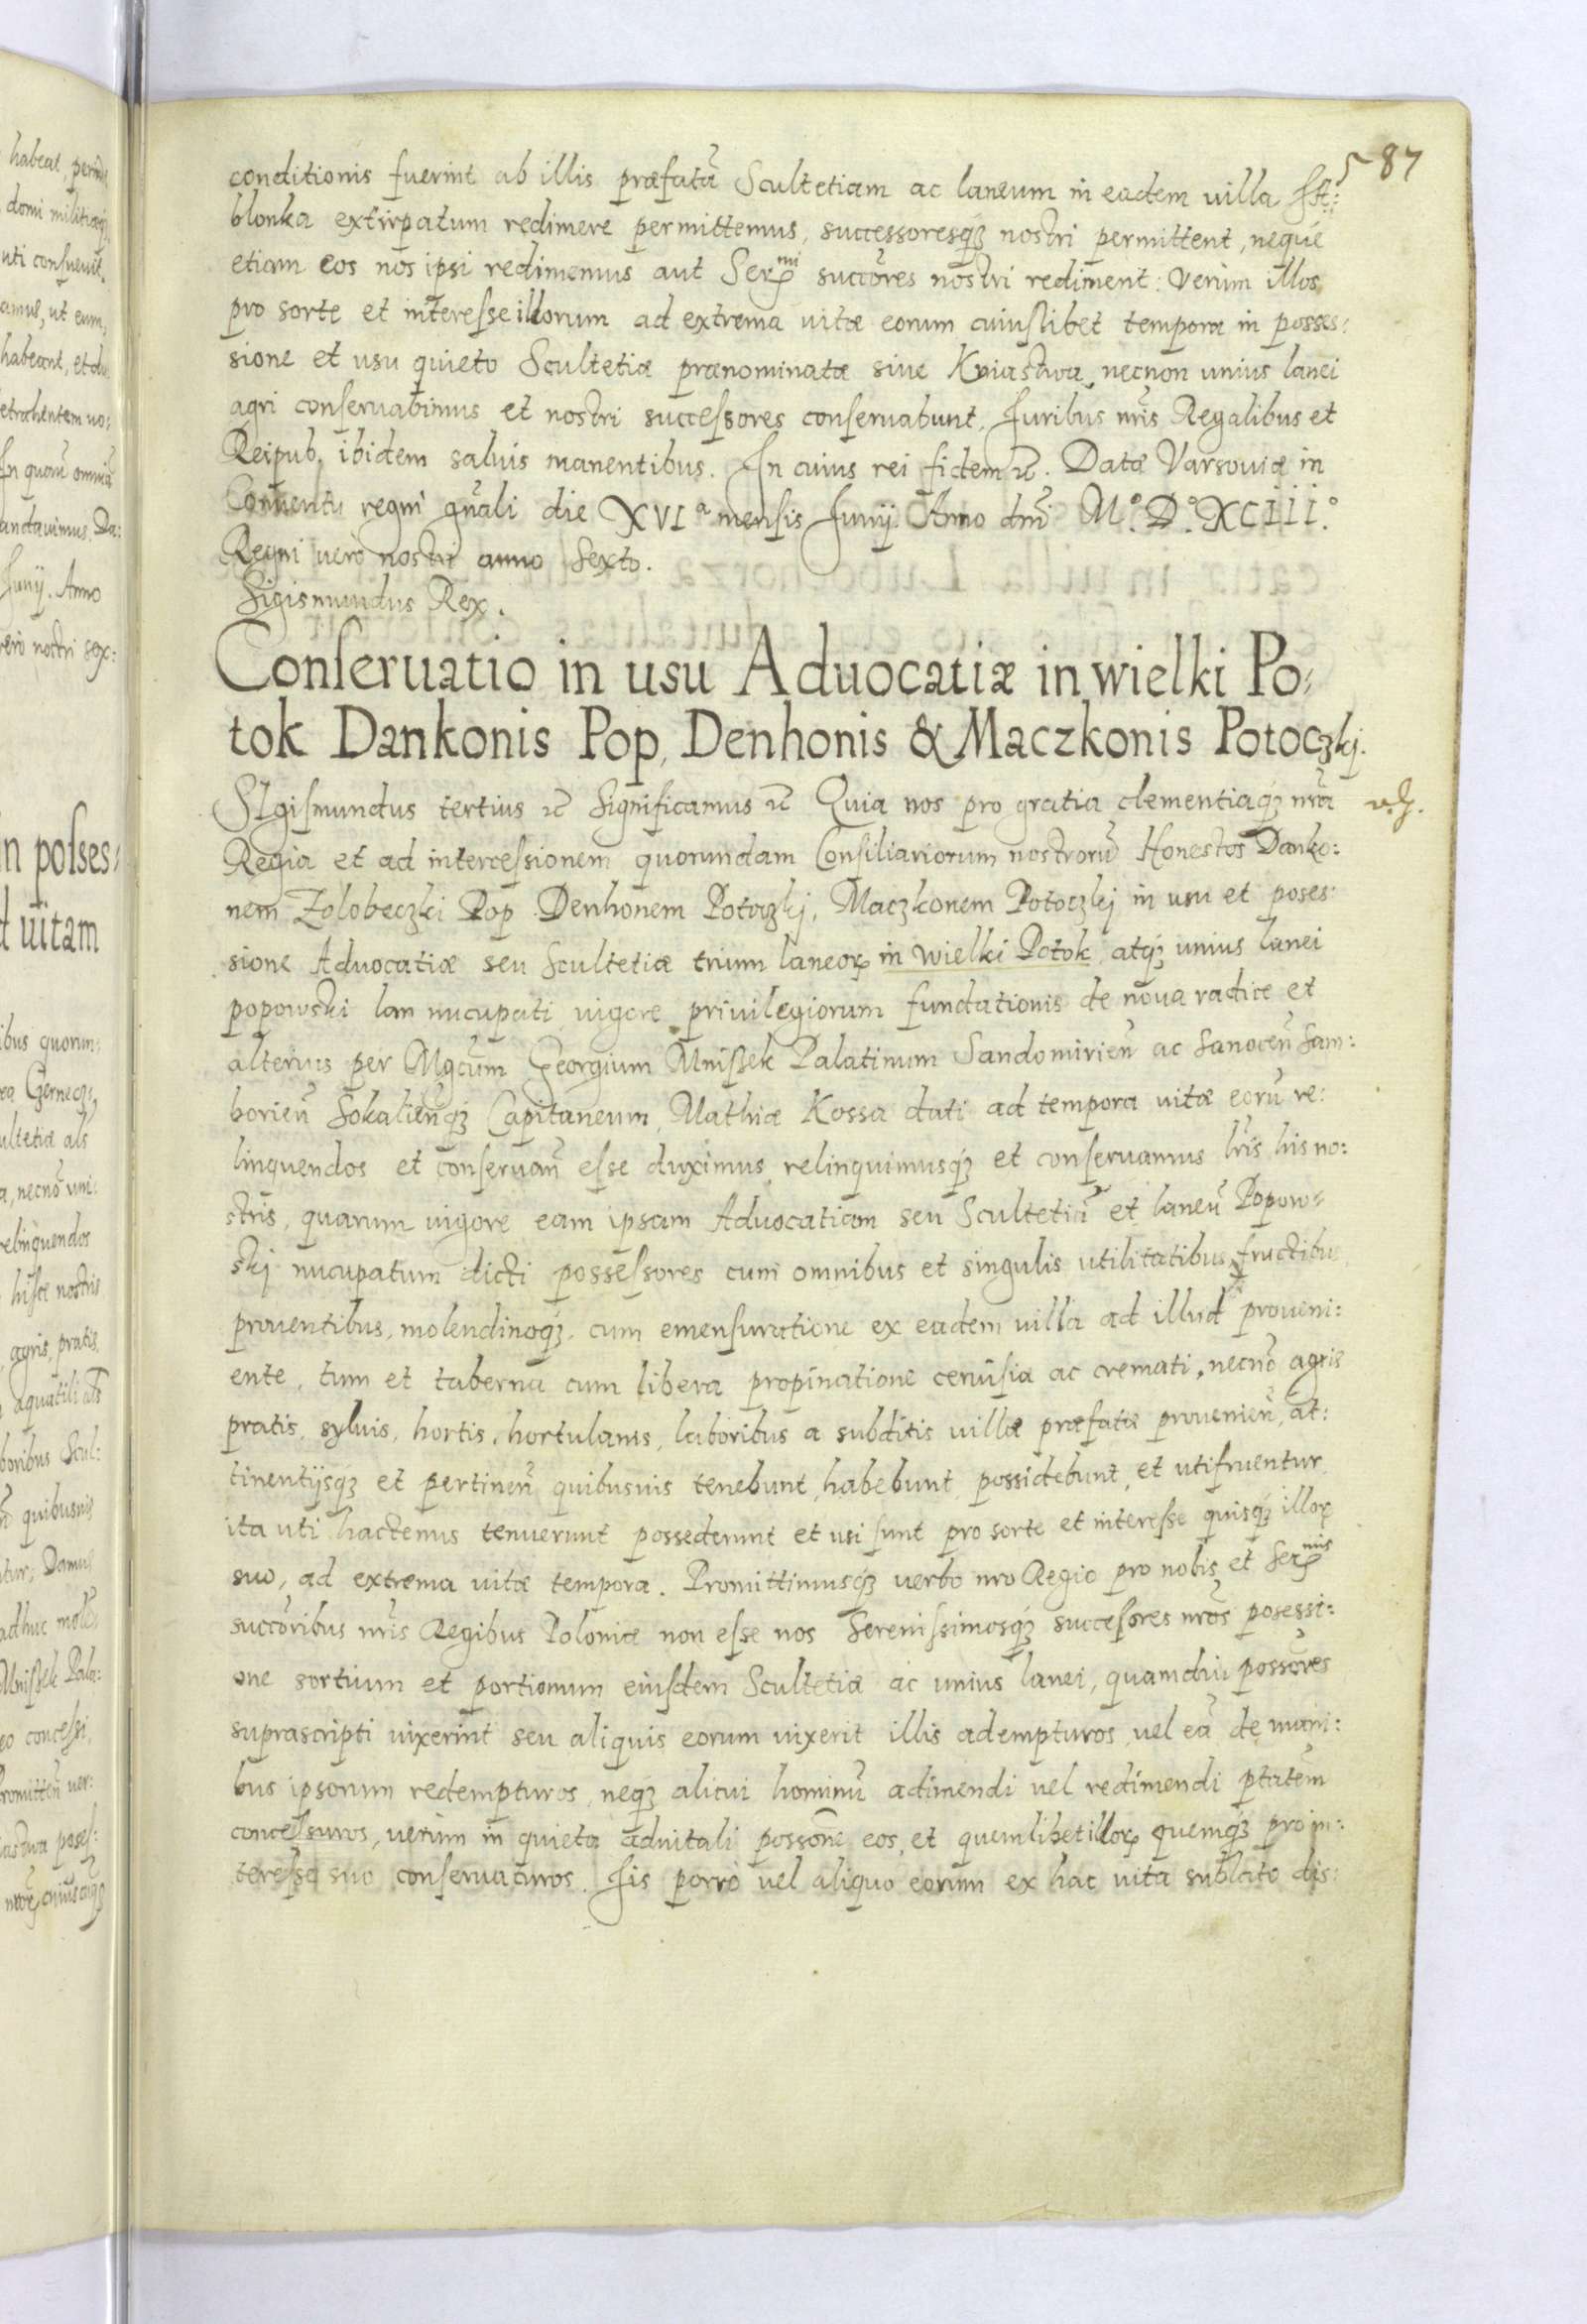 587
conditionis fuerint ab illis præfatã Scultetiam ac laneum in eadem villa
blonka extirpatum redimere permittemus, successoresq3 nostri permittent, neque
etiam eos nos ipsi redimemus aut Ser^mi succõres nostri rediment: Verùm illos
pro sorte et interesse illorum ad extrema vitæ eorum cuiuslibet tempora in posses:
sione et usu quieto Scultetiæ prænominatæ siue Kniastwa, necnon unius lanei
agri conseruabimus et nostri successores conseruabunt. Juribus nr̃is Regalibus et
Reipub. ibidem saluis manentibus. In cuius rei fidem etc. Datæ Varsouiæ in
Conuentu regni gñali die XVI^a mensis Junij. Anno dnĩ M.° D.° XCIII.°
Regni verò nostri anno Sexto.
Sigismundus Rex.
Conseruatio in usu Aduocatiæ in wielki Po-
tok Dankonis Pop, Denhonis & Maczkonis Potoczkj.
SIgismundus tertius etc Significamus etc Quia nos pro gratia clementiaq3 nr̃a
Regia et ad intercessionem quorundam Consiliariorum nostrorũ Honestos Danko:
nem Zolobeczki Pop Denhonem Potoczkj, Maczkonem Potoczkj in usu et poses:
sione Aduocatiæ seu Scultetiæ trium laneor̃ in wielki Potok, atq3 unius lanei
popowski lan nucupati vigore priuilegiorum fundationis de noua radice et
alterius per Mgcũm Georgium Mnißek Palatinum Sandomirieñ ac Sanoceñ Sam:
borieñ Sokalieñq3 Capitaneum, Mathiæ Kossa dati ad tempora vitæ eorũ re:
linquendos et conseruañ esse duximus, relinquimusq3 et conseruamus lr̃is his no:
stris, quarum vigore eam ipsam Aduocatiam seu Scultetiã et laneũ Popow-
skj nucupatum dicti possessores cum omnibus et singulis vtilitatibus, fructibus
prouentibus, molendinoq3 cum emensuratione ex eadem villa ad illud proueni:
ente, tum et taberna cum libera propinatione ceruisiæ ac cremati, necnõ agris
pratis, syluis, hortis, hortulanis, laboribus a subditis villæ præfatæ prouenieñ, at:
tinentijsq3 et pertineñ quibusuis tenebunt, habebunt, possidebunt, et vtifruentur
ita vti hactenus tenuerunt possederunt et vsi sunt pro sorte et interesse quisq3 illor̃
suo, ad extrema vitæ tempora. Promittimusq3 verbo nr̃o Regio pro nobis et Ser^mis
succõribus nr̃is Regibus Poloniæ non esse nos Serenissimosq3 successores nr̃os posessi:
one sortium et portionum eiusdem Scultetiæ ac unius lanei, quamdiu possõres
suprascripti vixerint seu aliquis eorum vixerit illis adempturos, vel eã de mani:
bus ipsorum redempturos, neq3 alicui hominũ adimendi vel redimendi ptãtem
concessuros, verùm in quieta aduitali possõne eos, et quemlibet illor̃ quemq3 pro in:
teresse suo conseruaturos. Iis porrò vel aliquo eorum ex hac vita sublato dis: